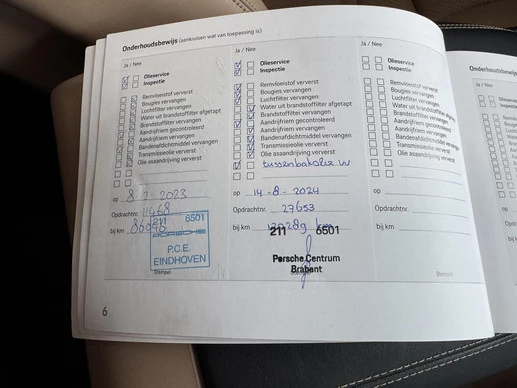 Onderhoudsbewijs (aankruisen wat van toepassing is)
Ja / Nee
Olieservice
Inspectie
Remvloeistof ververst
Bougies vervangen
Luchtfilter vervangen
Water uit brandstoffilter afgetapt
Brandstoffilter vervangen
Aandrijfriem gecontroleerd
Aandrijfriem vervangen
Bandenafdichtmiddel vervangen
Transmissieolie ververst
Olie asaandrijving ververst
op 8-2-2023
Opdrachtnr. 11468
bij km
211 6501
PORSCHE
P.C.E.
EINDHOVEN
Stempel
Ja / Nee
Olieservice
Inspectie
Remvloeistof ververst
Bougies vervangen
Luchtfilter vervangen
Water uit brandstoffilter afgetapt
Brandstoffilter vervangen
Aandrijfriem gecontroleerd
Aandrijfriem vervangen
Bandenafdichtmiddel vervangen
Transmissieolie ververst
Olie asaandrijving ververst
op 14-8-2024
Opdrachtnr. 27653
bij km
211 6501
Porsche Centrum
Brabant
Ja / Nee
Olieservice
Inspectie
Remvloeistof ververst
Bougies vervangen
Luchtfilter vervangen
Water uit brandstoffilter afgetapt
Brandstoffilter vervangen
Aandrijfriem gecontroleerd
Aandrijfriem vervangen
Bandenafdichtmiddel vervangen
Transmissieolie ververst
Olie asaandrijving ververst
op
Opdrachtnr.
bij km
Stempel
6
Onderhoudsbewijs
Ja / Nee